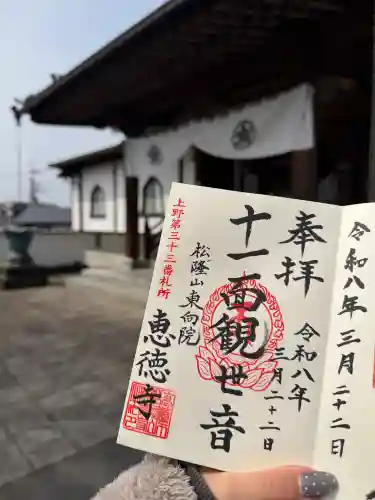 令和八年三月二十二日
奉拝
令和八年
三月二十二日
十一面観世音
松隆山東向院
恵徳寺
上野三十三番札所